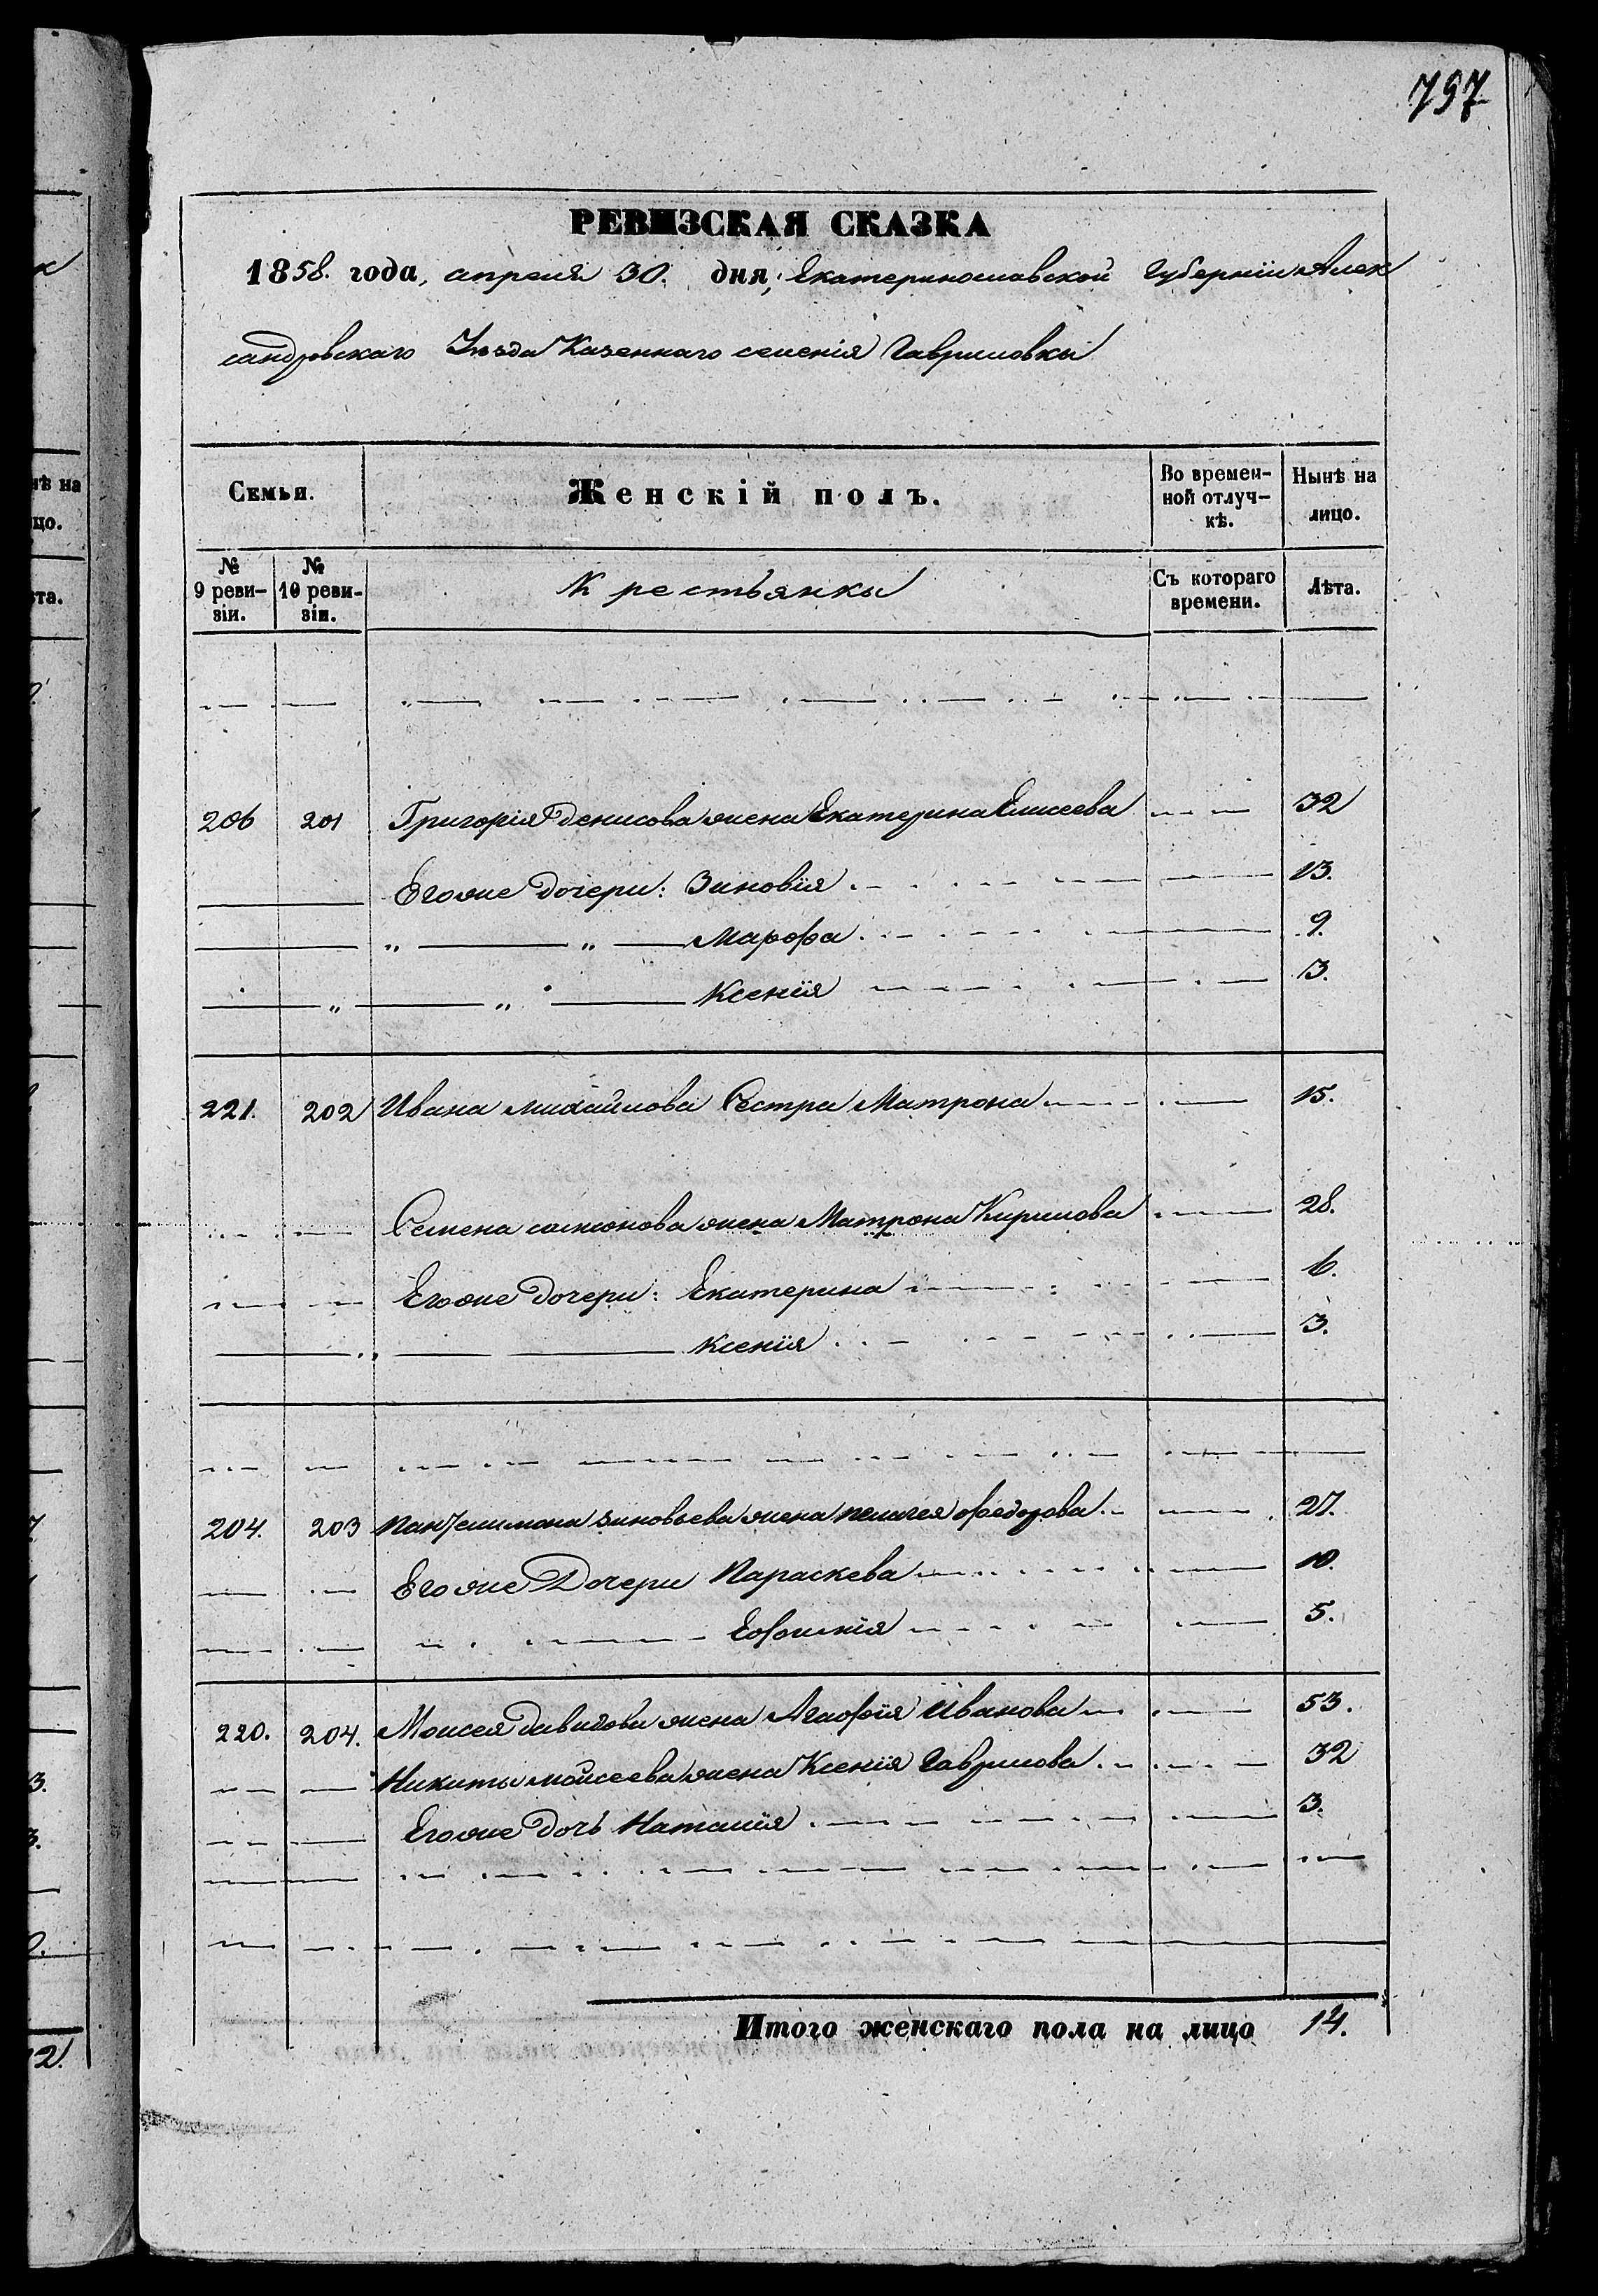 797
РЕВИЗСКАЯ СКАЗКА
1858. года, апреля 30. дня, Екатеринославской Губерніи Алек
сандровскаго Уѣзда Казеннаго селенія Гавриловки
Семья. Женскій полъ. Во времен- Нынѣ на
ной отлуч- лицо.
кѣ.
№ № Крестьянки Съ котораго Лѣта.
9 реви- 10 реви- времени.
зіи. зіи.
206 201 Григорія Денисова жена Екатерина Елисеева 32
Его же дочери: Зиновія 13.
" " Марфа 9.
" " Ксенія 3.
221. 202 Ивана Михайлова Сестра Матрона 15.
Семена самсонова жена Матрона Кирилова 28.
Его же дочери: Екатерина 6.
" Ксенія 3.
204. 203 Пантелимона Зиновьева жена пелагея федорова 27.
Его же Дочери Параскева 10.
" Евфимія 5.
220. 204. Моисея давидова жена Агафія Иванова 53.
Никиты мойсеева жена Ксенія Гаврилова 32
Его же дочь Наталія 3.
Итого женскаго пола на лицо 14.
нѣ на
цо.
ѣта.